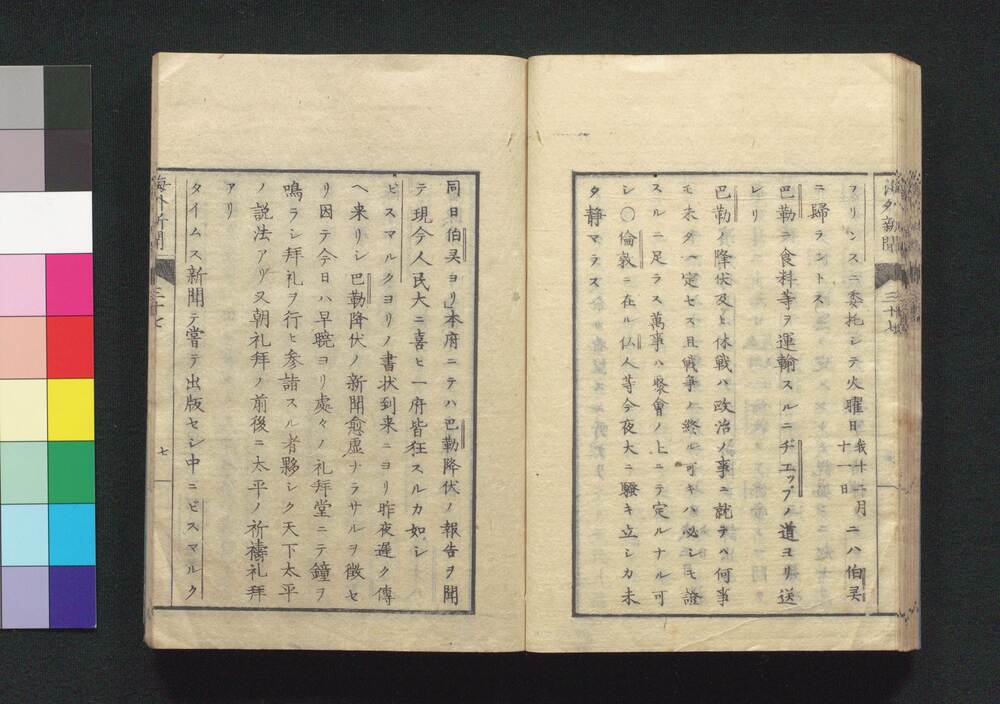 海外新聞 三十七
フリンスニ委托シテ火曜日我十二月十一日ニハ伯灵
ニ歸ラントス
巴勒ニ食料等ヲ運輸スルニヂエップノ道ヨリ送
レリ
巴勒ノ降伏及ヒ休戦ハ政治ノ事ニ就テハ何事
モ未タ一定セス且戦争ノ終ル可キハ必シモ證
スルニ足ラス萬事ハ聚會ノ上ニテ定ルナル可
シ〇倫敦ニ在ル仏人等今夜大ニ騒キ立シカ未
タ静マラス
同日伯灵ヨリ本府ニテハ巴勒降伏ノ報告ヲ聞
テ現今人民大ニ喜ヒ一府皆狂スルカ如シ
ビスマルクヨリノ書状到来ニヨリ昨夜遅ク傳
ヘ来リシ巴勒降伏ノ新聞愈虚ナラサルヲ徴セ
リ因テ今日ハ早暁ヨリ處々ノ礼拜堂ニテ鐘ヲ
鳴ラシ拜礼ヲ行ヒ参詣スル者夥シク天下太平
ノ説法アリ又朝礼拜ノ前後ニ太平ノ祈禱礼拜
アリ
タイムス新聞テ嘗テ出版セシ中ニビスマルク
海外新聞 三十七 七